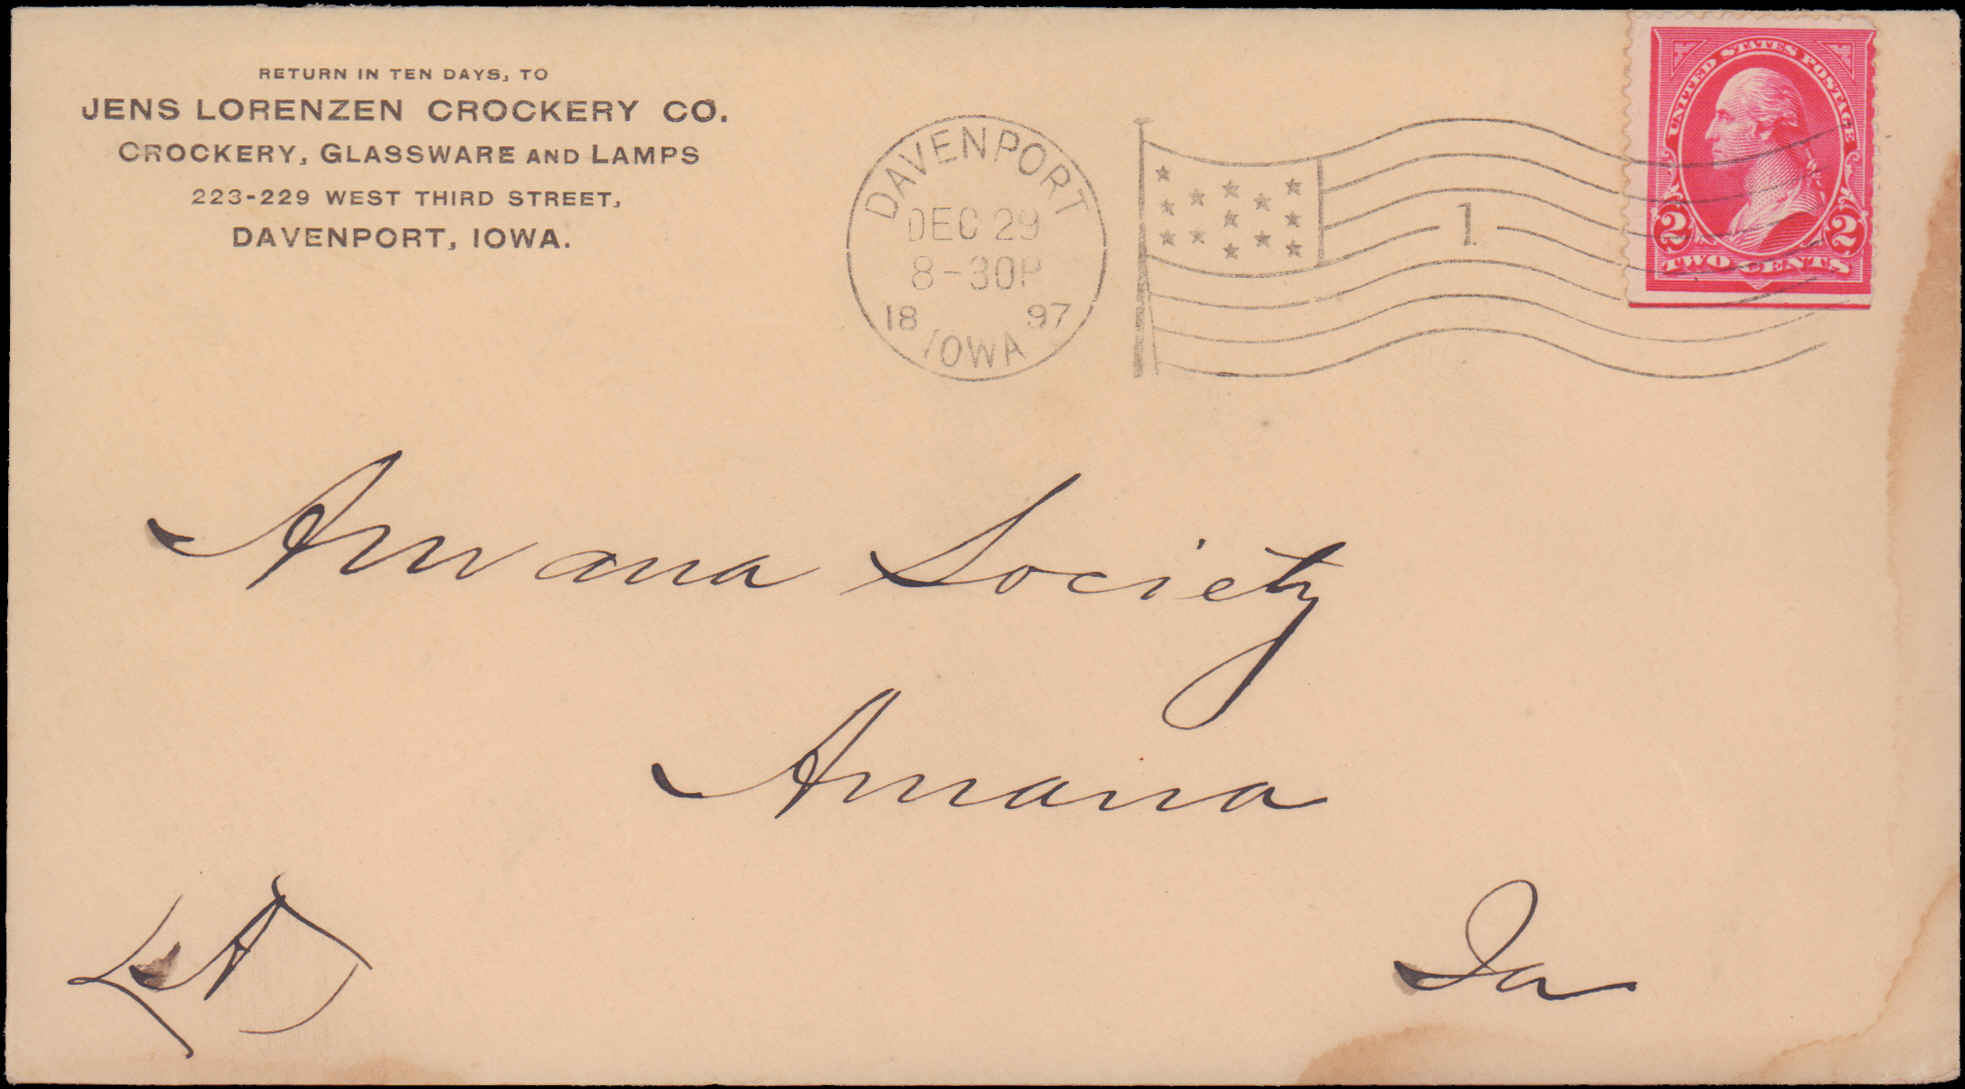 RETURN IN TEN DAYS, TO
JENS LORENZEN CROCKERY CO.
CROCKERY, GLASSWARE AND LAMPS
223-229 WEST THIRD STREET,
DAVENPORT, IOWA.
DAVENPORT
DEC 29
8-30P
1897
IOWA
1
UNITED STATES POSTAGE
2 2
TWO CENTS
Amana Society
Amana
Ia